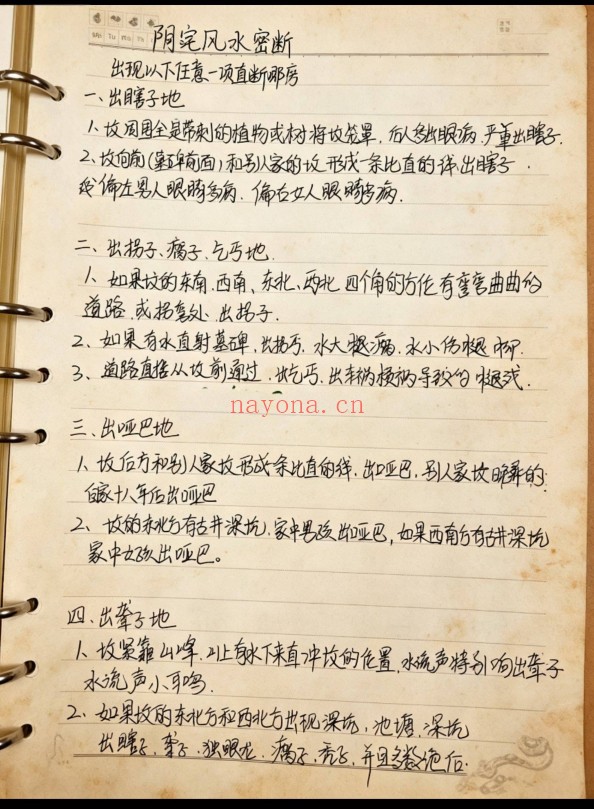 Mo Tu Mo Th
阴宅风水密断
出现以下任意一项直断那房
一、出瞎子地
1、坟周围全是带刺的植物或树将坟笼罩,后人多出眼病,严重出瞎子.
2、坟向前(墓碑前面)和别人家的坟形成一条比直的线出瞎子.
偏左男人眼睛多病.偏右女人眼睛多病.
二、出拐子、瘸子、乞丐地.
1、如果坟的东南、西南、东北、西北四个角的方位有弯弯曲曲的
道路.或拐弯处.出拐子.
2、如果有水直射墓碑,出拐丐,水大腿瘸.水小伤腿脚.
3、道路直接从坟前通过.出乞丐.出车祸横祸导致的腿残.
nayona.cn
三、出哑巴地
1、坟后方和别人家坟形成一条比直的线.出哑巴,别人家坟晚葬的
自家十八年后出哑巴
2、坟的东北方有古井深坑.家中男孩出哑巴,如果西南方有古井深坑
家中女孩出哑巴。
四、出聋子地
1、坟紧靠山峰.山上有水下来直冲坟的位置.水流声特别响出聋子
水流声小耳鸣.
2、如果坟的东北方和西北方出现深坑,池塘,深坑
出瞎子,聋子,独眼龙,瘸子,秃子,并且多数绝后.